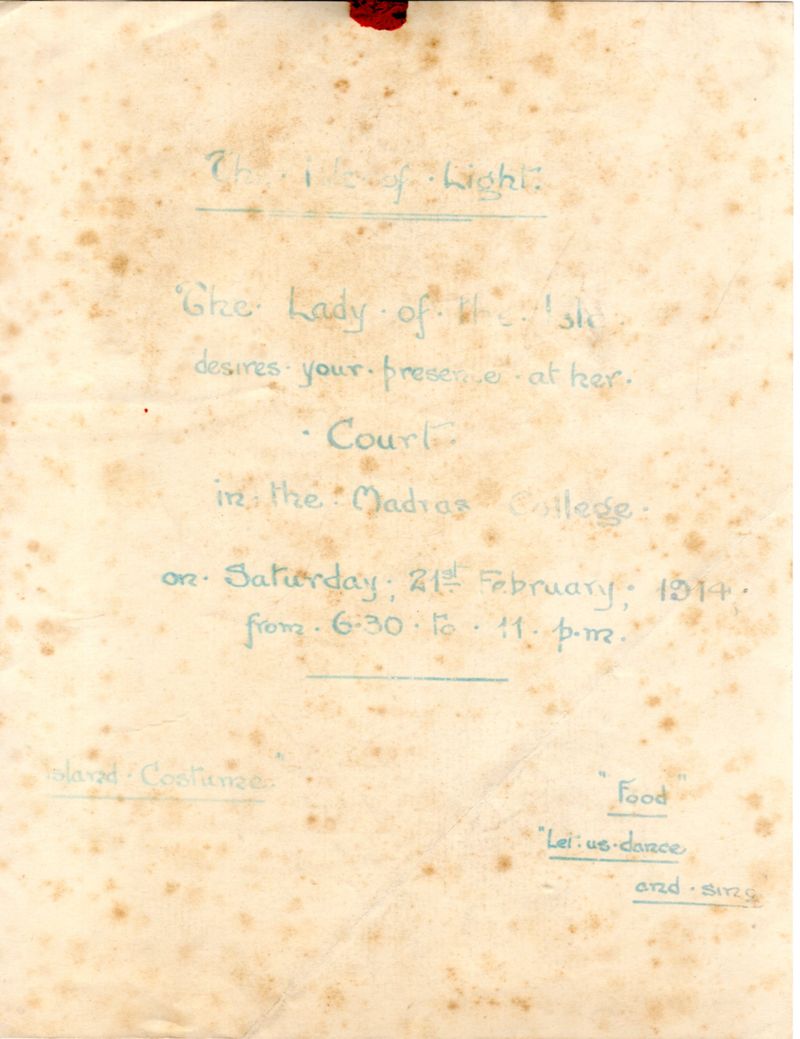 The · Isle of · Light.
The · Lady · of · the · Isle
desires · your · presence · at her.
· Court ·
in · the · Madras College.
on · Saturday; 21st February; 1914;
from · 6·30 · to · 11 · p.m.
Island · Costume."
"Food"
"Let · us · dance
and · sing